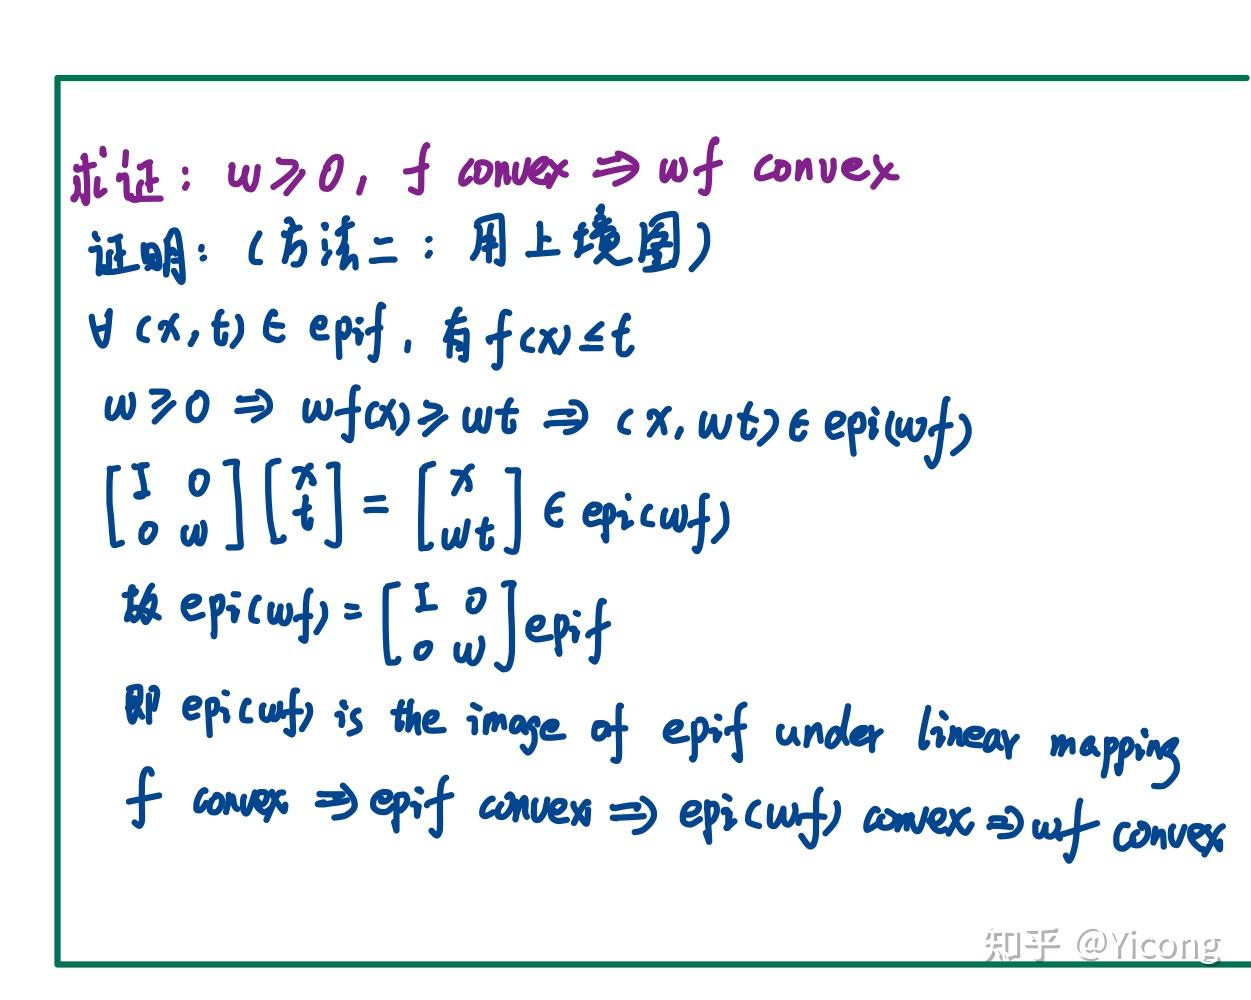 求证: w≥0, f convex ⇒ wf convex
证明: (方法二: 用上境图)
∀ (x, t) ∈ epif, 有 f(x) ≤ t
w≥0 ⇒ wf(x) ≥ wt ⇒ (x, wt) ∈ epi(wf)
[I 0; 0 w] [x; t] = [x; wt] ∈ epi(wf)
故 epi(wf) = [I 0; 0 w] epif
即 epi(wf) is the image of epif under linear mapping
f convex ⇒ epif convex ⇒ epi(wf) convex ⇒ wf convex
知乎 @Yicong